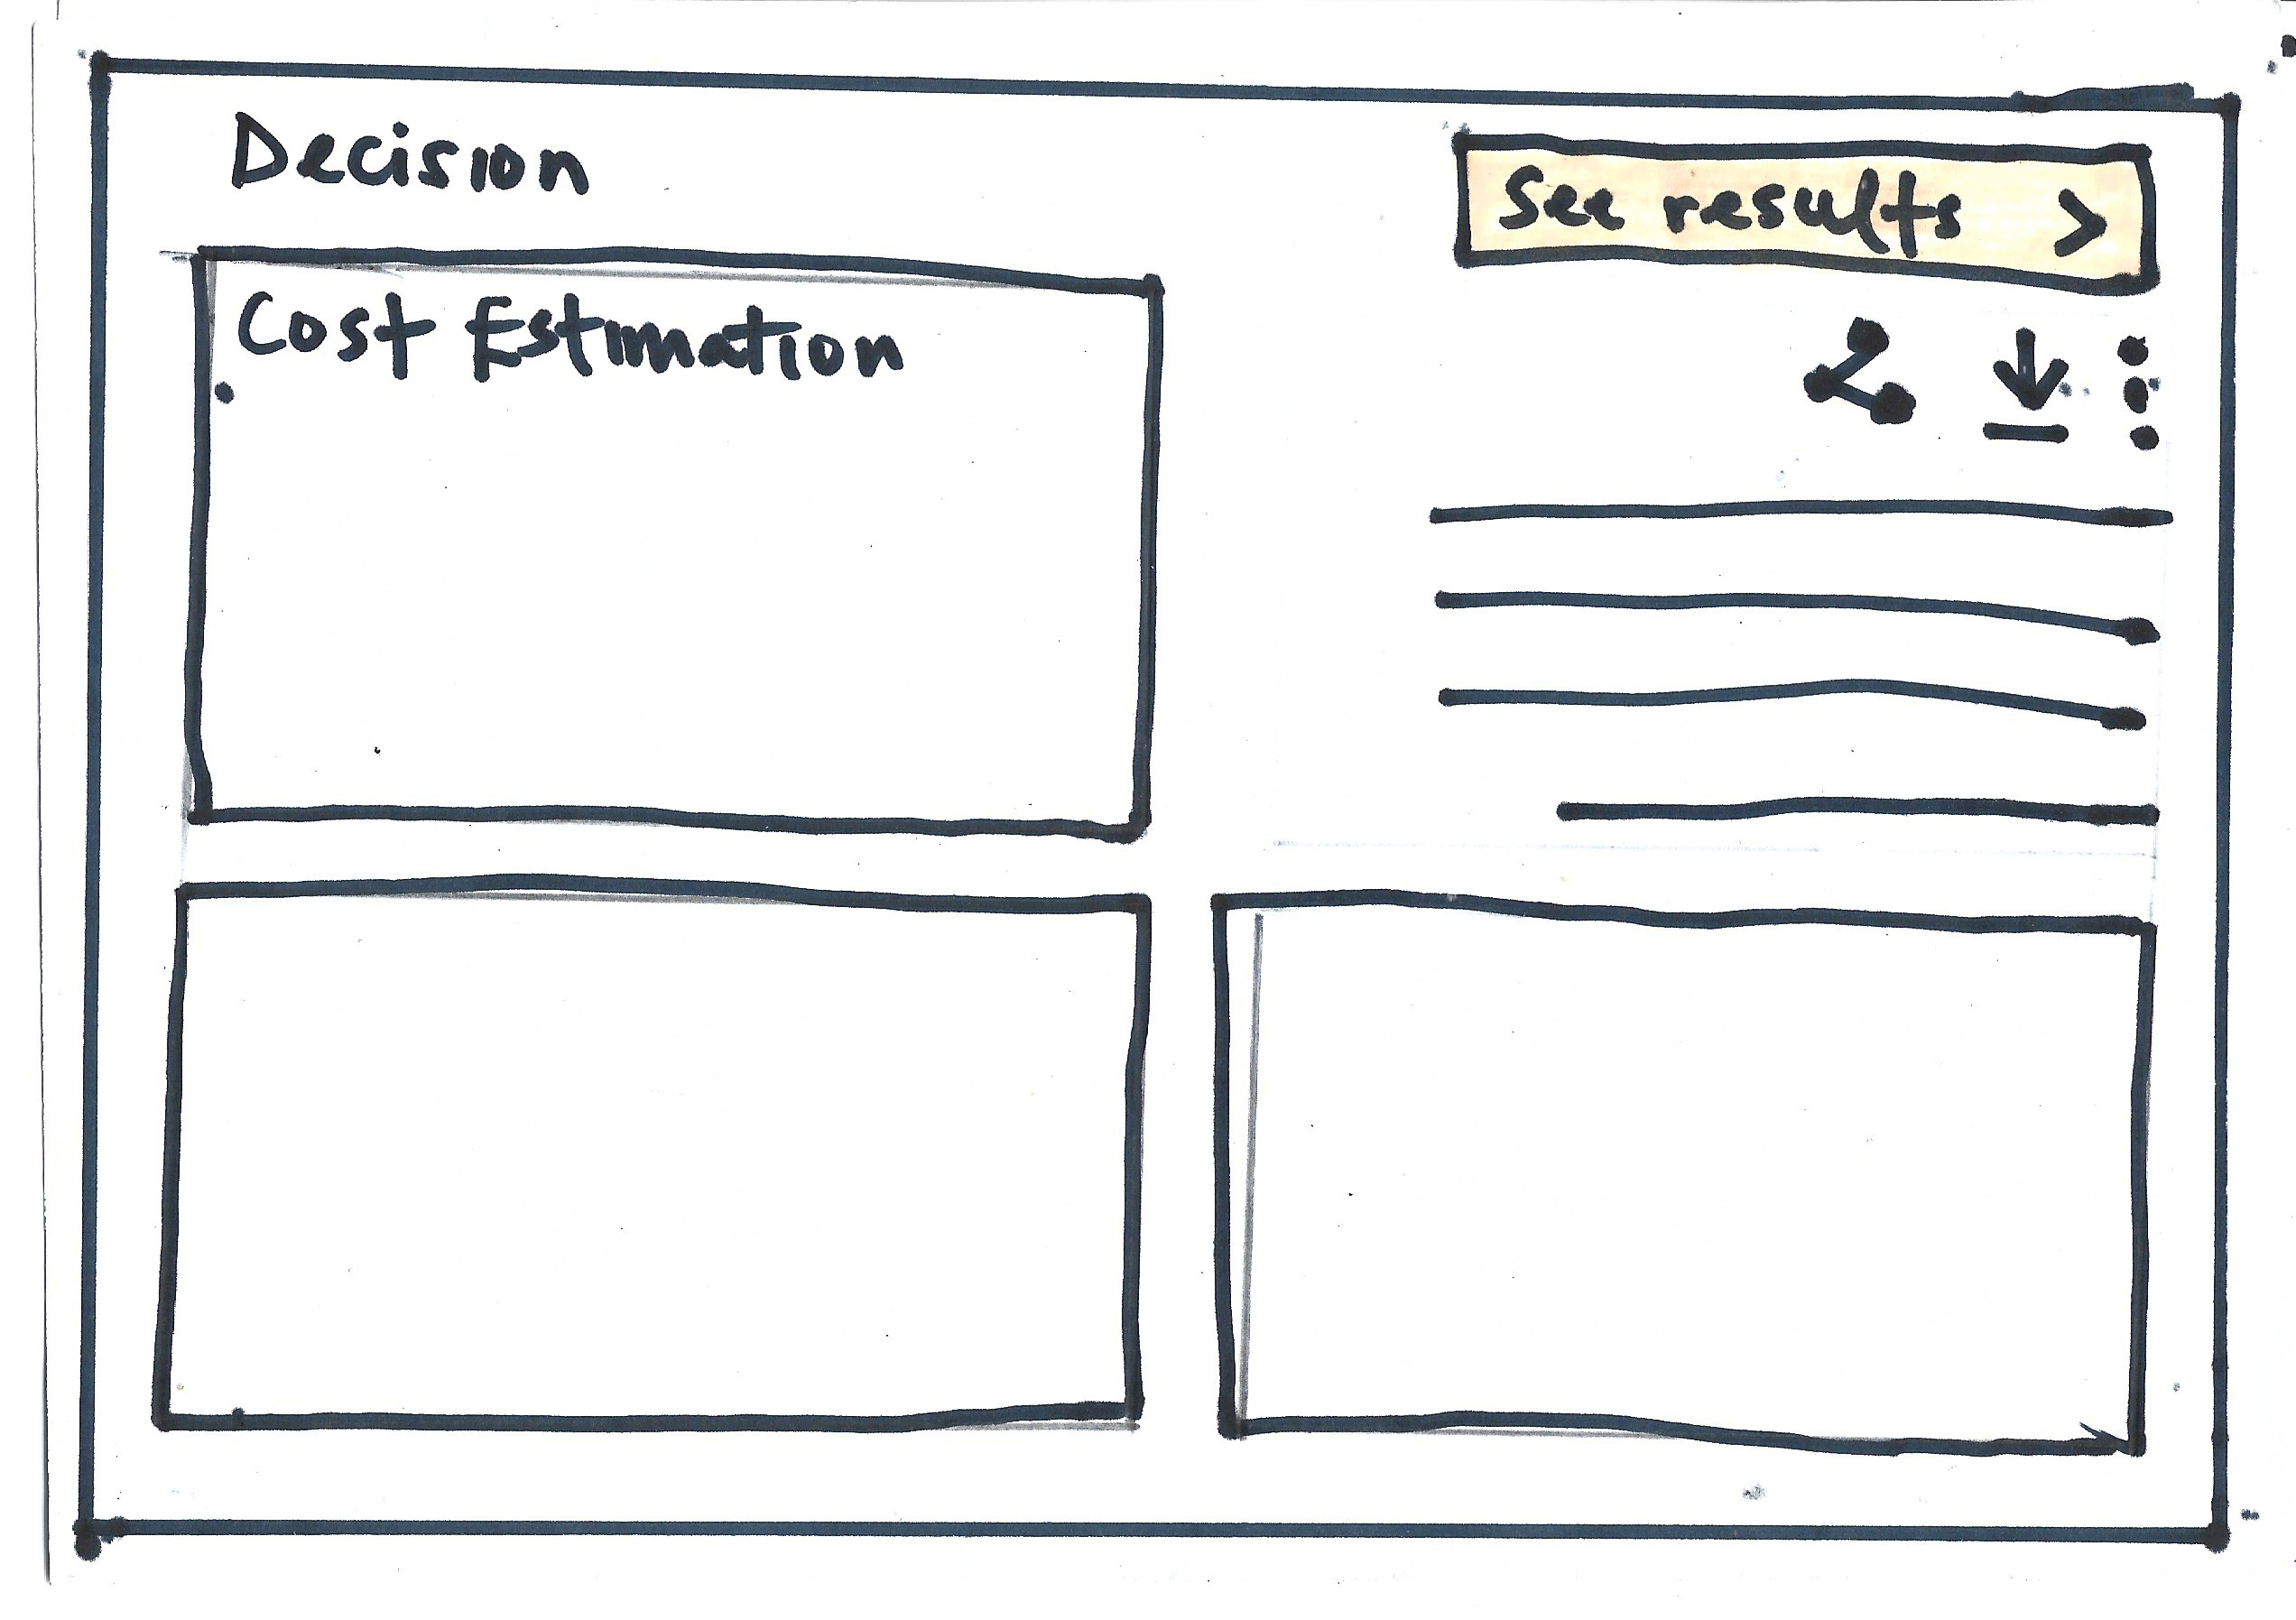 Decision
See results >
Cost Estimation